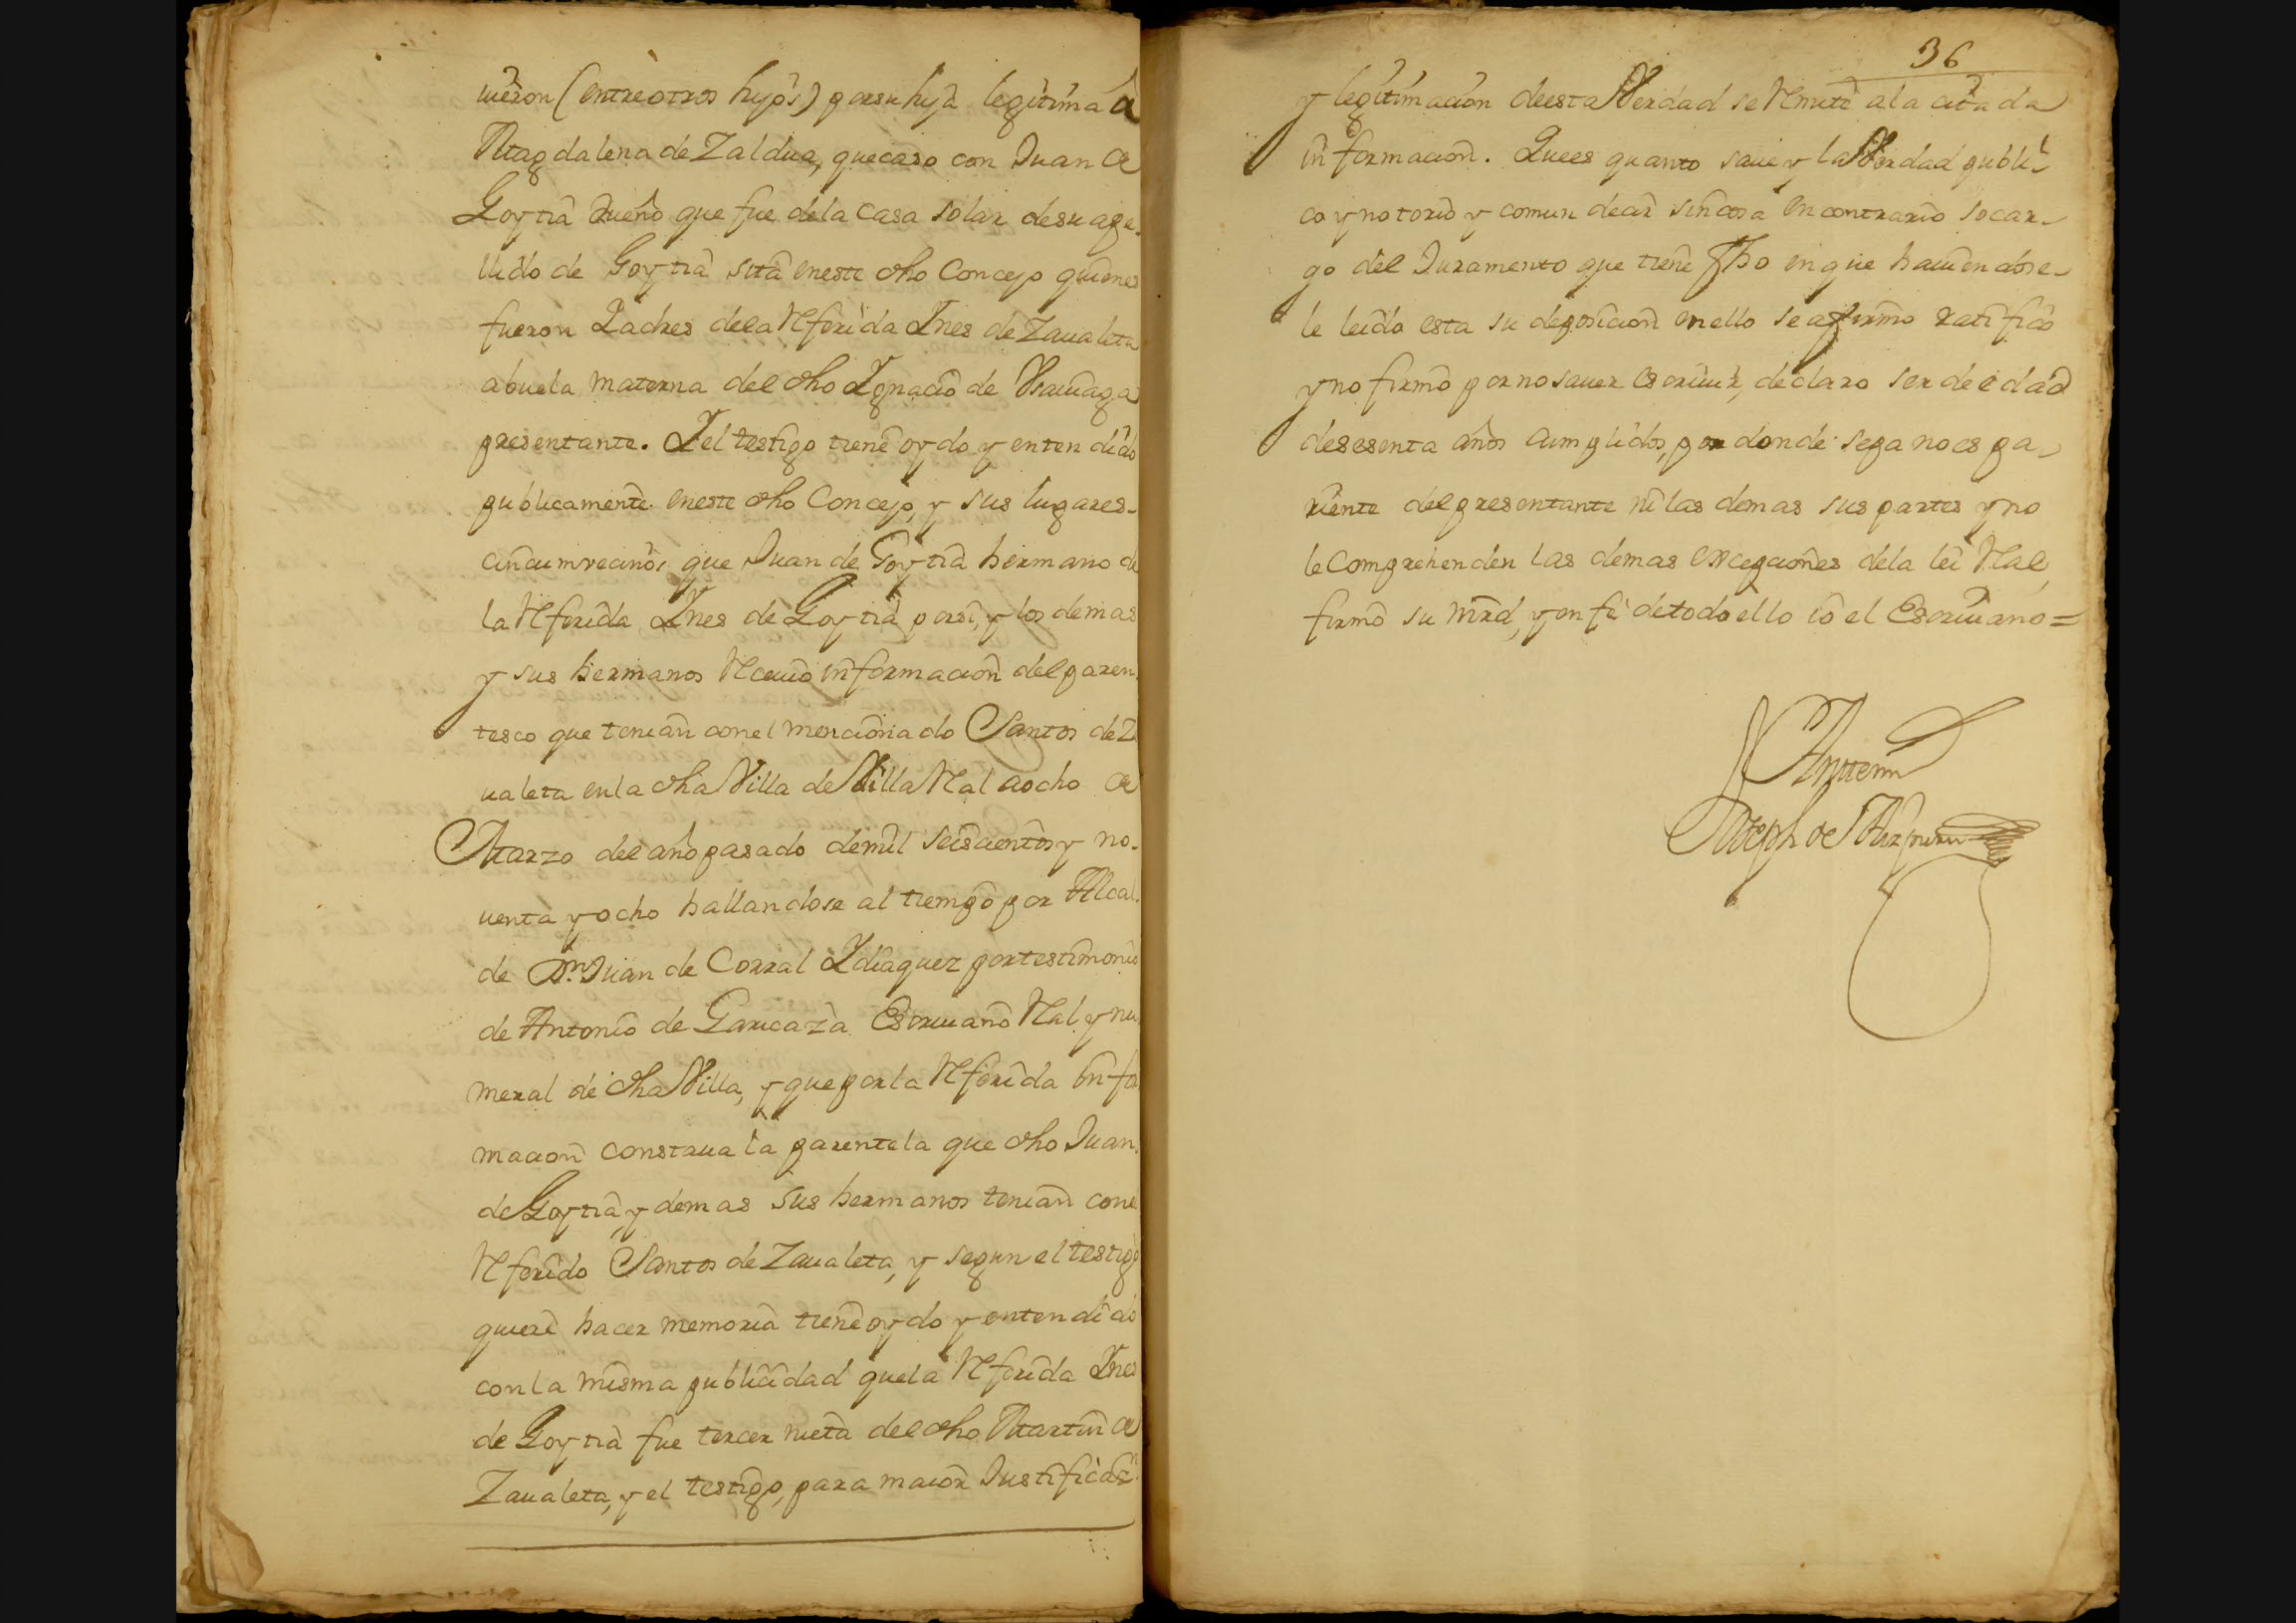 uieron (entre otros hijos) por su hija legitima a
Magdalena de Zaldua, que caso con Juan de
Goytia dueño que fue de la casa solar de su ape-
llido de Goytia sita en este dho Concejo quienes
fueron Padres de la Referida Ynes de Zaualeta
abuela materna del dho Ygnacio de
presentante. Y el testigo tiene oydo y entendido
publicamente en este dho Concejo, y sus lugares
circumvecinos, que Juan de Goytia hermano de
la Referida Ynes de Goytia por si, y los demas
y sus hermanos Receuio informacion del paren-
tesco que tenian con el mencionado Santos de Za
ualeta en la dha Villa de Villa Real a ocho de
Marzo del año pasado de mil seiscientos y no-
uenta y ocho hallandose al tiempo por Alcal-
de Dn. Juan de Corral Ydiaquez por testimonio
de Antonio de Garicaza Escriuano Real y nu-
meral de dha Villa, y que por la Referida Infor
macion constaua la parentela que dho Juan
de Goytia, y demas sus hermanos tenian con el
Referido Santos de Zaualeta, y segun el testigo
quiere hacer memoria tiene oydo y entendido
con la misma publicidad que la Referida Ynes
de Goytia fue tercer nieta del dho Martin de
Zaualeta, y el testigo, para maior Justificacn
36
y legitimacion de esta Verdad se Remite a la citada
informacion. Que es quanto saue y la Verdad publi-
co y notorio y comun decir sin cosa en contrario so car-
go del Juramento que tiene fho en que hauiendose-
le leido esta su deposicion en ello se afirmo ratifico
y no firmo por no sauer escriuir, declaro ser de edad
de sesenta años cumplidos, por donde sepa no es pa-
riente del presentante ni las demas sus partes y no
le Comprehenden las demas excepciones de la lei Real
firmo su mrd, y en fe de todo ello io el Escriuano =
Anttemi
Joseph de Aizpuru